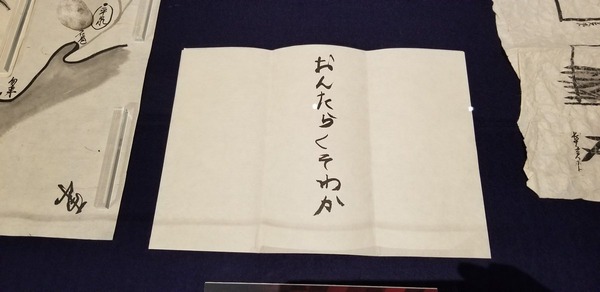 おんたらくそわか